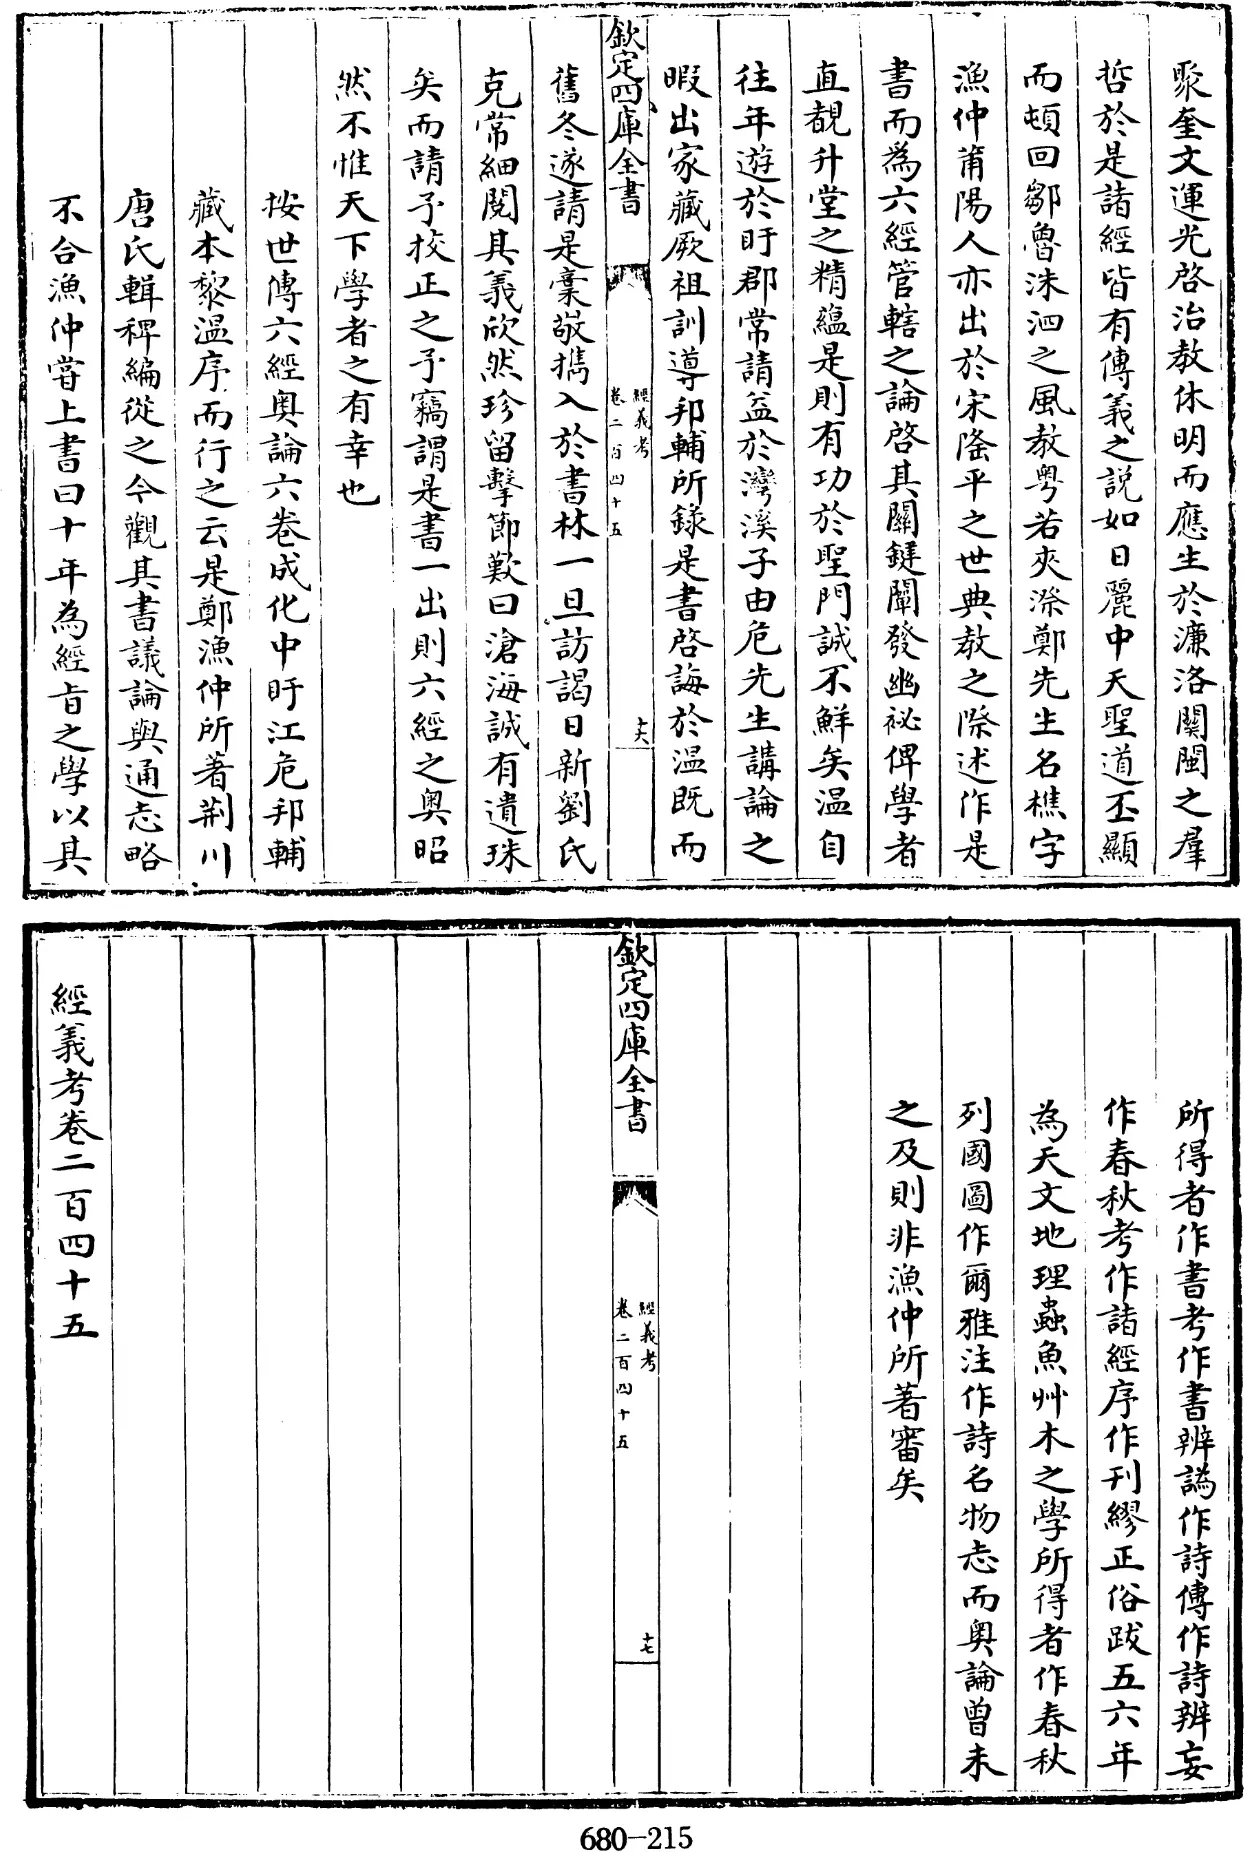 聚奎文運光啓治教休明而應生於濂洛關閩之羣
哲於是諸經皆有傳義之説如日麗中天聖道丕顯
而頓回鄒魯洙泗之風教粤若夾漈鄭先生名樵字
漁仲莆陽人亦出於宋隆平之世典教之際述作是
書而為六經管轄之論啓其關鍵闡發幽祕俾學者
直覩升堂之精藴是則有功於聖門誠不鮮矣温自
往年遊於盱郡常請益於灣溪子由危先生講論之
暇出家藏厥祖訓導邦輔所録是書啓誨於温既而
欽定四庫全書
經義考
卷二百四十五
十六
舊冬遂請是稾敬攜入於書林一旦訪謁日新劉氏
克常細閲其義欣然珍留擊節歎曰滄海誠有遺珠
矣而請予校正之予竊謂是書一出則六經之奥昭
然不惟天下學者之有幸也
按世傳六經奥論六卷成化中盱江危邦輔
藏本黎温序而行之云是鄭漁仲所著荆川
唐氏輯稗編從之今觀其書議論與通志略
不合漁仲嘗上書曰十年為經㫖之學以其
所得者作書考作書辨譌作詩傳作詩辨妄
作春秋考作諸經序作刊繆正俗跋五六年
為天文地理蟲魚艸木之學所得者作春秋
列國圖作爾雅注作詩名物志而奥論曾未
之及則非漁仲所著審矣
欽定四庫全書
經義考
卷二百四十五
十七
經義考卷二百四十五
680-215